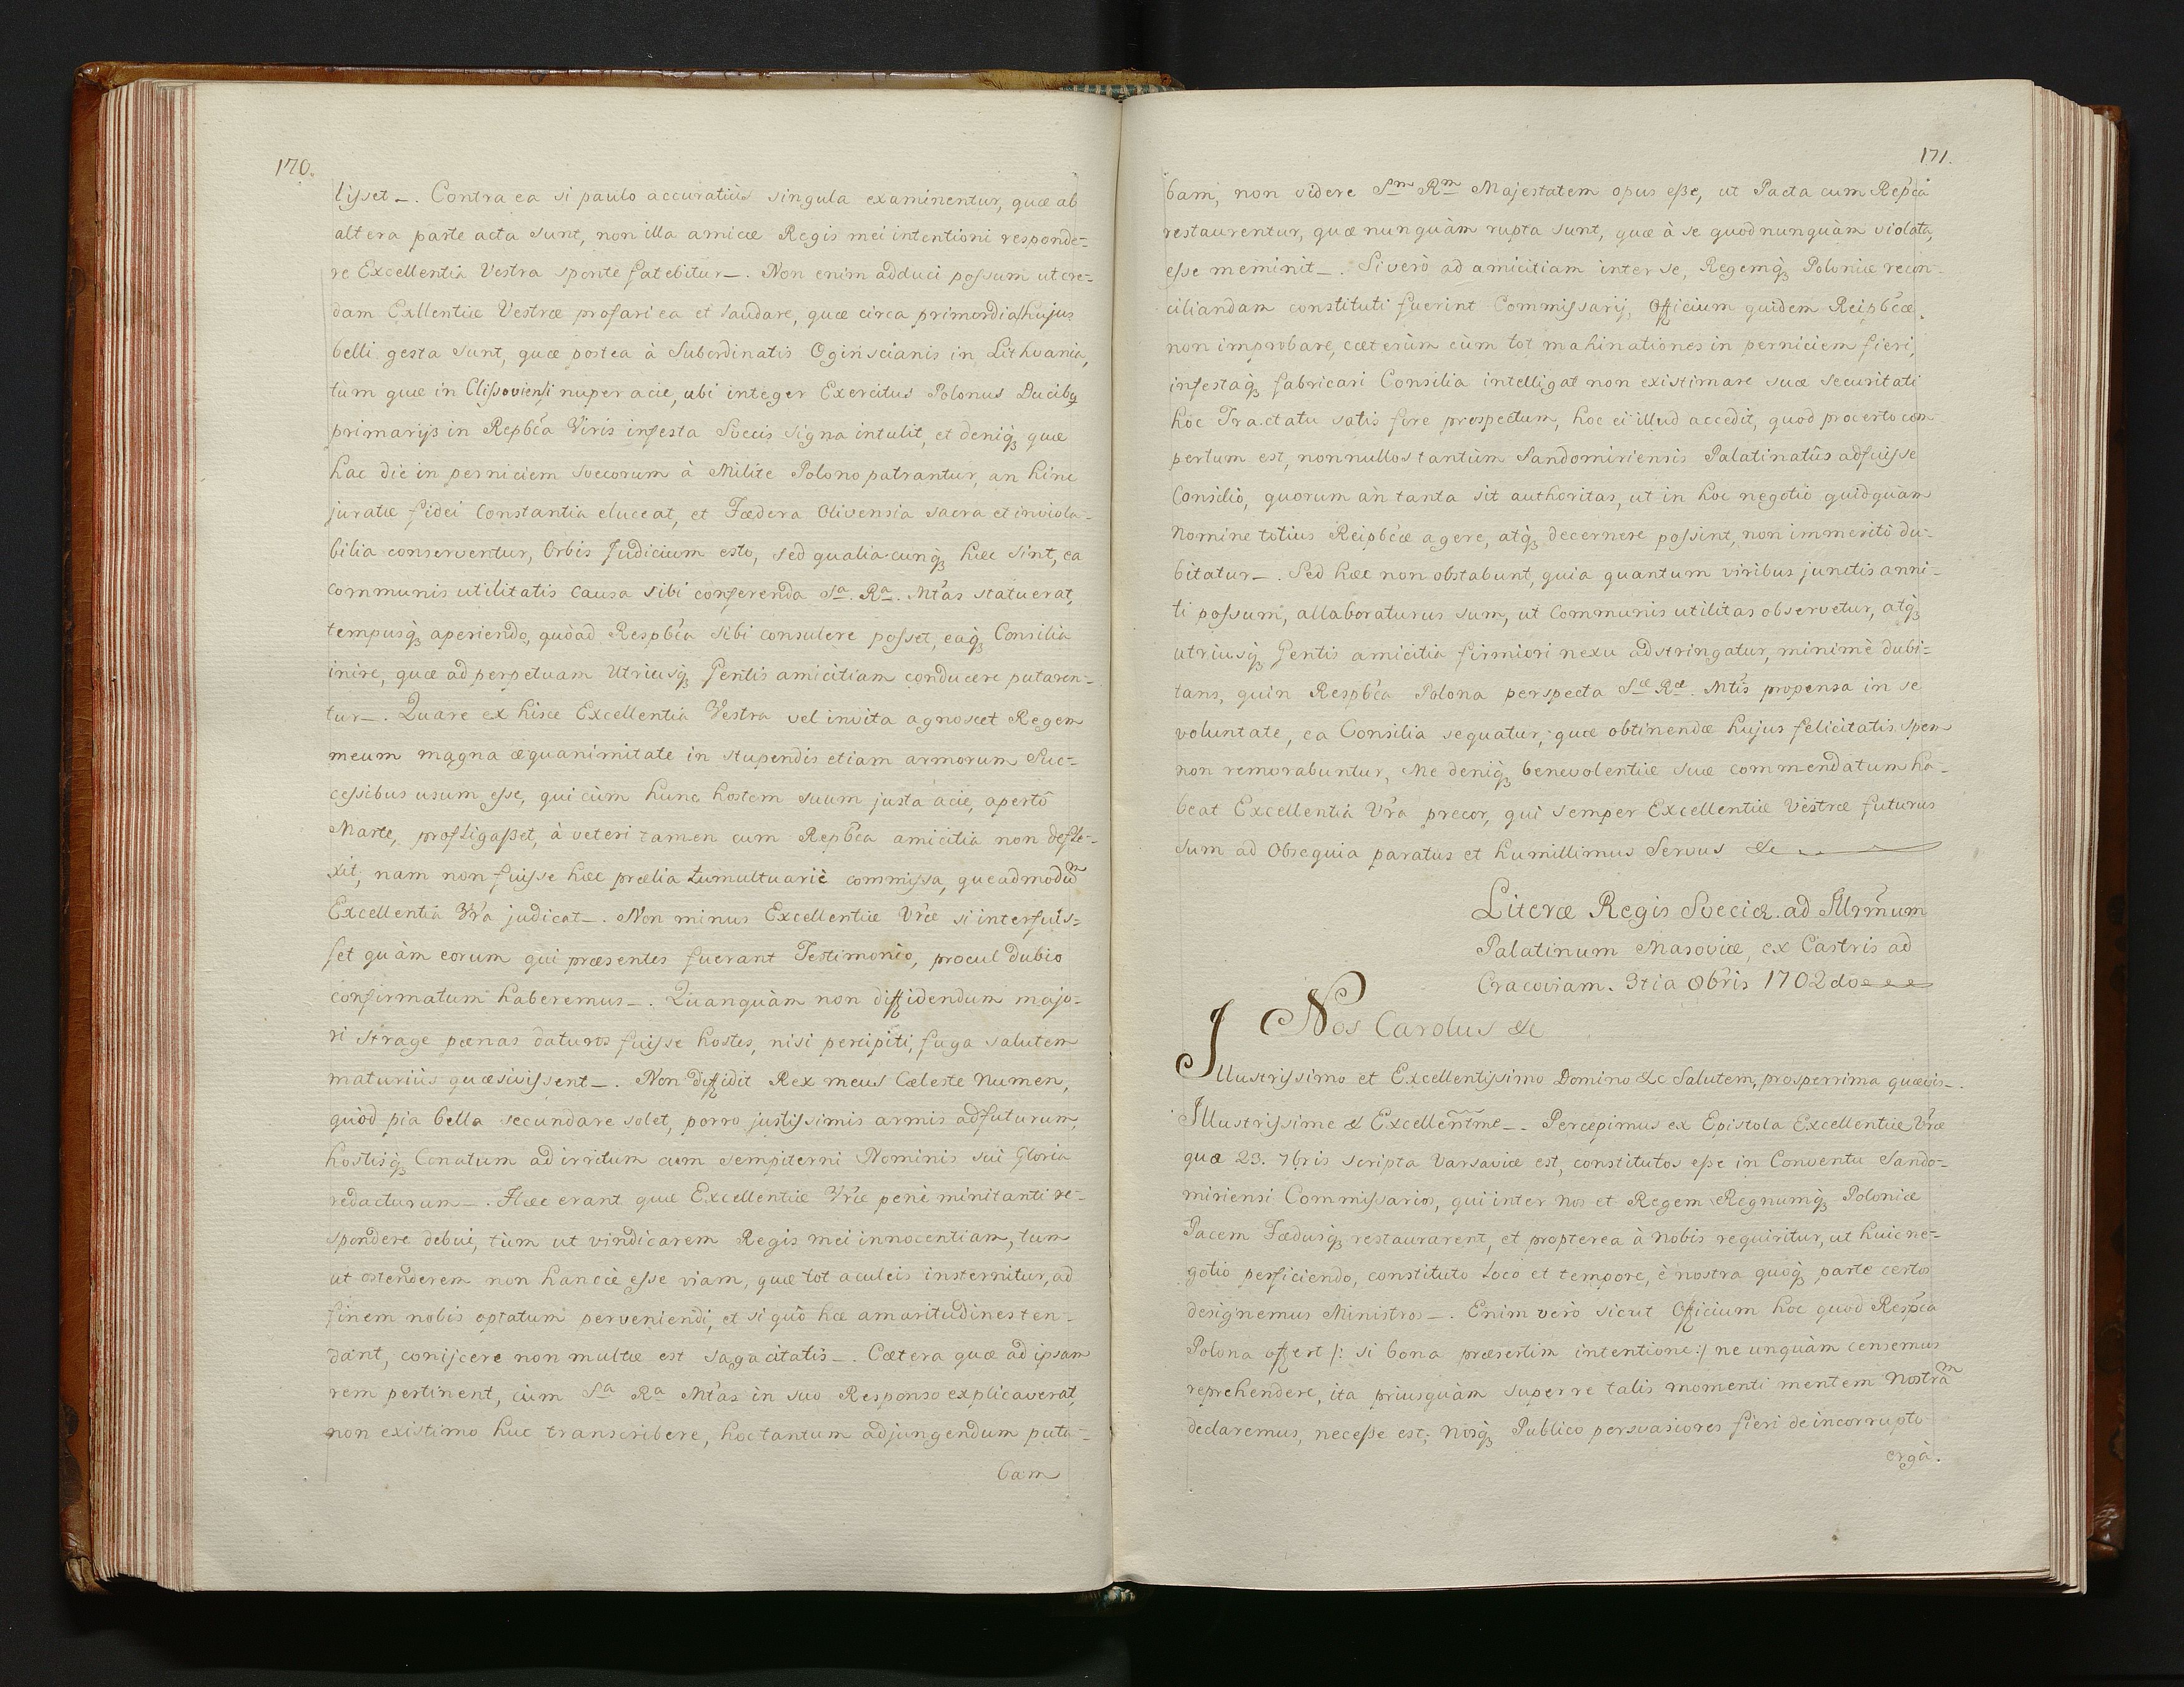 170.
lisset_. Contra ea si paulo accuratiùs singula examinentur, quæ ab
altera parte acta sunt, non illa amicæ Regis mei intentioni responde-
re Excellentia Vestra sponte fatebitur_. Non enim adduci possum ut cre-
dam Exllentiæ Vestræ profari ea et laudare, quæ circa primordia hujus
belli gesta sunt, quæ postea à Subordinatis Ogińscianis in Lithvania,
tùm quæ in Clissoviensi nuper acie, ubi integer Exercitus Polonus Ducibq
primarijs in Repb̃ca Viris infesta Svecis signa intulit, et deniq́ȝ quæ
hac die in perniciem Svecorum à Milite Polono patrantur, an hinc
juratæ fidei Constantia eluceat, et Fœdera Olivensia sacra et inviola-
bilia conserventur, Orbis Judicium esto, sed qualiacunq́ȝ hæc sint, ea
communis utilitatis causa sibi conferenda Sa. Ra. Mt́as statuerat,
tempusq́ȝ aperiendo, quòad Respb̃ca sibi consulere posset, eaq́ȝ Consilia
inire, quæ ad perpetuam Utriusq́ȝ Gentis amicitiam conducere putaren-
tur_. Quare ex hisce Excellentia Vestra vel invita agnoscet Regem
meum magna æquanimitate in stupendis etiam armorum Suc-
cessibus usum esse, qui cùm hunc hostem suum justa acie, apertô
Marte, profligaßet, à veteri tamen cum Repb̃ca amicitia non defle-
xit, nam non fuisse hæc prælia tumultuariè commissa, queadmodũm
Excellentia Vŕa judicat_. Non minus Excellentiæ Vŕæ si interfuis-
set quàm eorum qui præsentes fuerant Testimonio, procul dubio
confirmatum haberemus_. Quanquàm non diffidendum majo-
ri strage pœnas daturos fuisse hostes, nisi percipiti, fuga salutem
maturiùs quæsivissent_. Non diffidit Rex meus Cæleste Numen,
quòd pia bella secundare solet, porro justissimis armis adfuturum,
hostisq́ȝ Conatum ad irritum cum sempiterni Nominis sui Gloria
redacturum_. Hæc erant quæ Excellentiæ Vŕæ penè minitanti re-
spondere debui, tùm ut vindicarem Regis mei innocentiam, tum
ut ostenderem non hancce esse viam, quæ tot aculeis insternitur, ad
finem nobis optatum perveniendi, et si quò hæ amaritudines ten-
dant, conijcere non multæ est sagacitatis_. Cætera quæ ad ipsam
rem pertinent, cùm Sa Ra Mt́as in suo Responso explicaverat,
non existimo huc transcribere, hoc tantum adjungendum puta-
bam
171.
bam, non videre Sm Rm Majestatem opus eße, ut Pacta cum Repb̃ca
restaurentur, quæ nunquàm rupta sunt, quæ à se quod nunquàm violata,
esse meminit_. Si verò ad amicitiam inter se, Regemq́ȝ Poloniæ recon-
ciliandam constituti fuerint Commissarij, Officium quidem Reipb̃cæ
non improbare, cæterùm cùm tot mahinationes in perniciem fieri,
infestaq́ȝ fabricari Consilia intelligat non existimare suæ securitati
hoc Tractatu satis fore prospectum, hoc ei illud accedit, quod pro certo com-
pertum est, nonnullos tantùm Sandomiriensis Palatinatûs adfuisse
Consilio, quorum àn tanta sit authoritas, ut in hoc negotio quidquàm
Nomine totius Reipb̃cæ agere, atq́ȝ decernere possint, non immeritò du-
bitatur_. Sed hæc non obstabunt, quia quantum viribus junctis anni-
ti possum, allaboraturus sum, ut Communis utilitas observetur, atq́ȝ
utriusq́ȝ Gentis amicitia firmiori nexu adstringatur, minimè dubi-
tans, quin Respb̃ca Polona perspecta Sæ Ræ. Mt́is propensa in se
voluntate, ea Consilia sequatur, quæ obtinendæ hujus felicitatis Spem
non remorabuntur, Me deniq́ȝ benevolentiæ suæ commendatum ha-
beat Excellentia Vŕa precor, qui semper Excellentiæ Vestræ futurus
sum ad Obsequia paratus et humillimus Servus &c
Literæ Regis Sveciæ ad Illrm̃um
Palatinum Masoviæ, ex Castris ad
Cracoviam. 3tia 8bris 1702do
Nos Carolus &c
Illustrissimo et Excellentissimo Domino &c Salutem, prosperrima quævis_.
Illustrissime & Excellen͠tme_. Percepimus ex Epistola Excellentiæ Vŕæ
quæ 23. 7bris scripta Varsaviæ est, constitutos eße in Conventu Sando-
miriensi Commissarios, qui inter Nos et Regem Regnumq́ȝ Poloniæ
Pacem Fœdusq́ȝ restaurarent, et propterea à Nobis requiritur, ut huic ne-
gotio perficiendo, constituto Loco et tempore, è nostra quoq́ȝ parte certos
designemus Ministros_. Enim verò sicut Officium hoc quod Respb̃ca
Polona offert /: si bona præsertim intentione :/ ne unquàm censemus
reprehendere, ita priusquàm super re talis momenti mentem Nostrãm
declaremus, necesse est, Nosq́ȝ Publico persvasiores fieri de incorrupto
ergà.